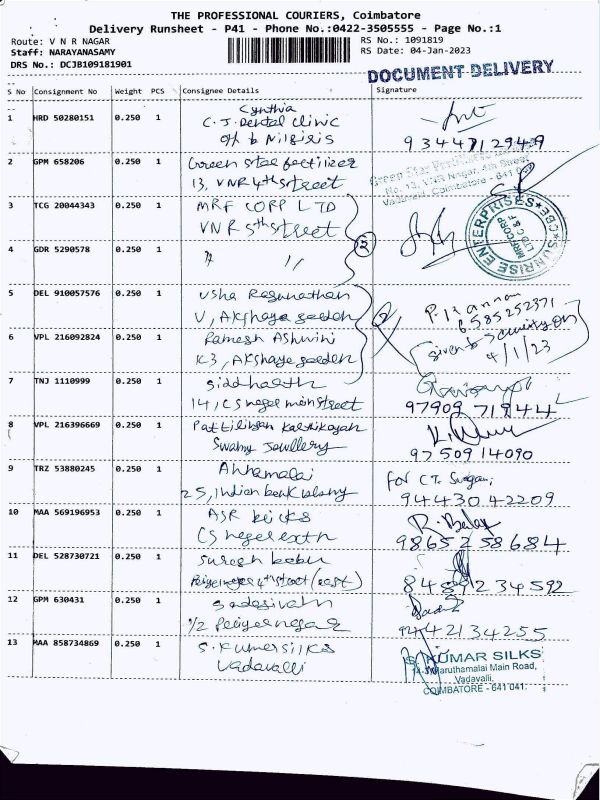 THE PROFESSIONAL COURIERS, Coimbatore
Delivery Runsheet - P41 - Phone No.:0422-3505555 - Page No.:1
Route: V N R NAGAR
Staff: NARAYANASAMY
DRS No.: DCJB109181901
RS No.: 1091819
RS Date: 04-Jan-2023
DOCUMENT DELIVERY
S No Consignment No Weight PCS Consignee Details Signature
1 HRD 50280151 0.250 1 Cynthia
C.J. Dental Clinic
9344712949
2 GPM 658206 0.250 1 Green star fertilizer
13, VNR 4th street
No. 13, VNR Nagar, 4th Street
Vadavalli, Coimbatore - 641 041
3 TCG 20044343 0.250 1 MRF CORP LTD
VNR 5th street
2
SUNRISE ENTERPRISES CBE
MRF CORP LTD C & F
4 GDR 5290578 0.250 1 〃 〃
5 DEL 910057576 0.250 1 Usha Ragunathan
V, Akshaya garden
P. Kannan
6585252371
6 VPL 216092824 0.250 1 Ramesh Ashwini
K3, Akshaya garden
2
given to security on
4/1/23
7 TNJ 1110999 0.250 1 Siddharth
14, CS nagar main street
97909 71944
8 VPL 216396669 0.250 1 Karthikayan
Swamy Jewellery
9750914090
9 TRZ 53880245 0.250 1 Annamalai
25, Indian bank colony
For C.T.
94430 42209
10 MAA 569196953 0.250 1 ASR
CS nagar extn
98652 58684
11 DEL 528730721 0.250 1 Suresh babu
4th street (east)
84892 34592
12 GPM 630431 0.250 1 Sadasivam
1/2 Periyar nagar
42134255
13 MAA 858734869 0.250 1 S. Kumar silks
Vadavalli
S. KUMAR SILKS
Maruthamalai Main Road,
Vadavalli,
COIMBATORE - 641 041.